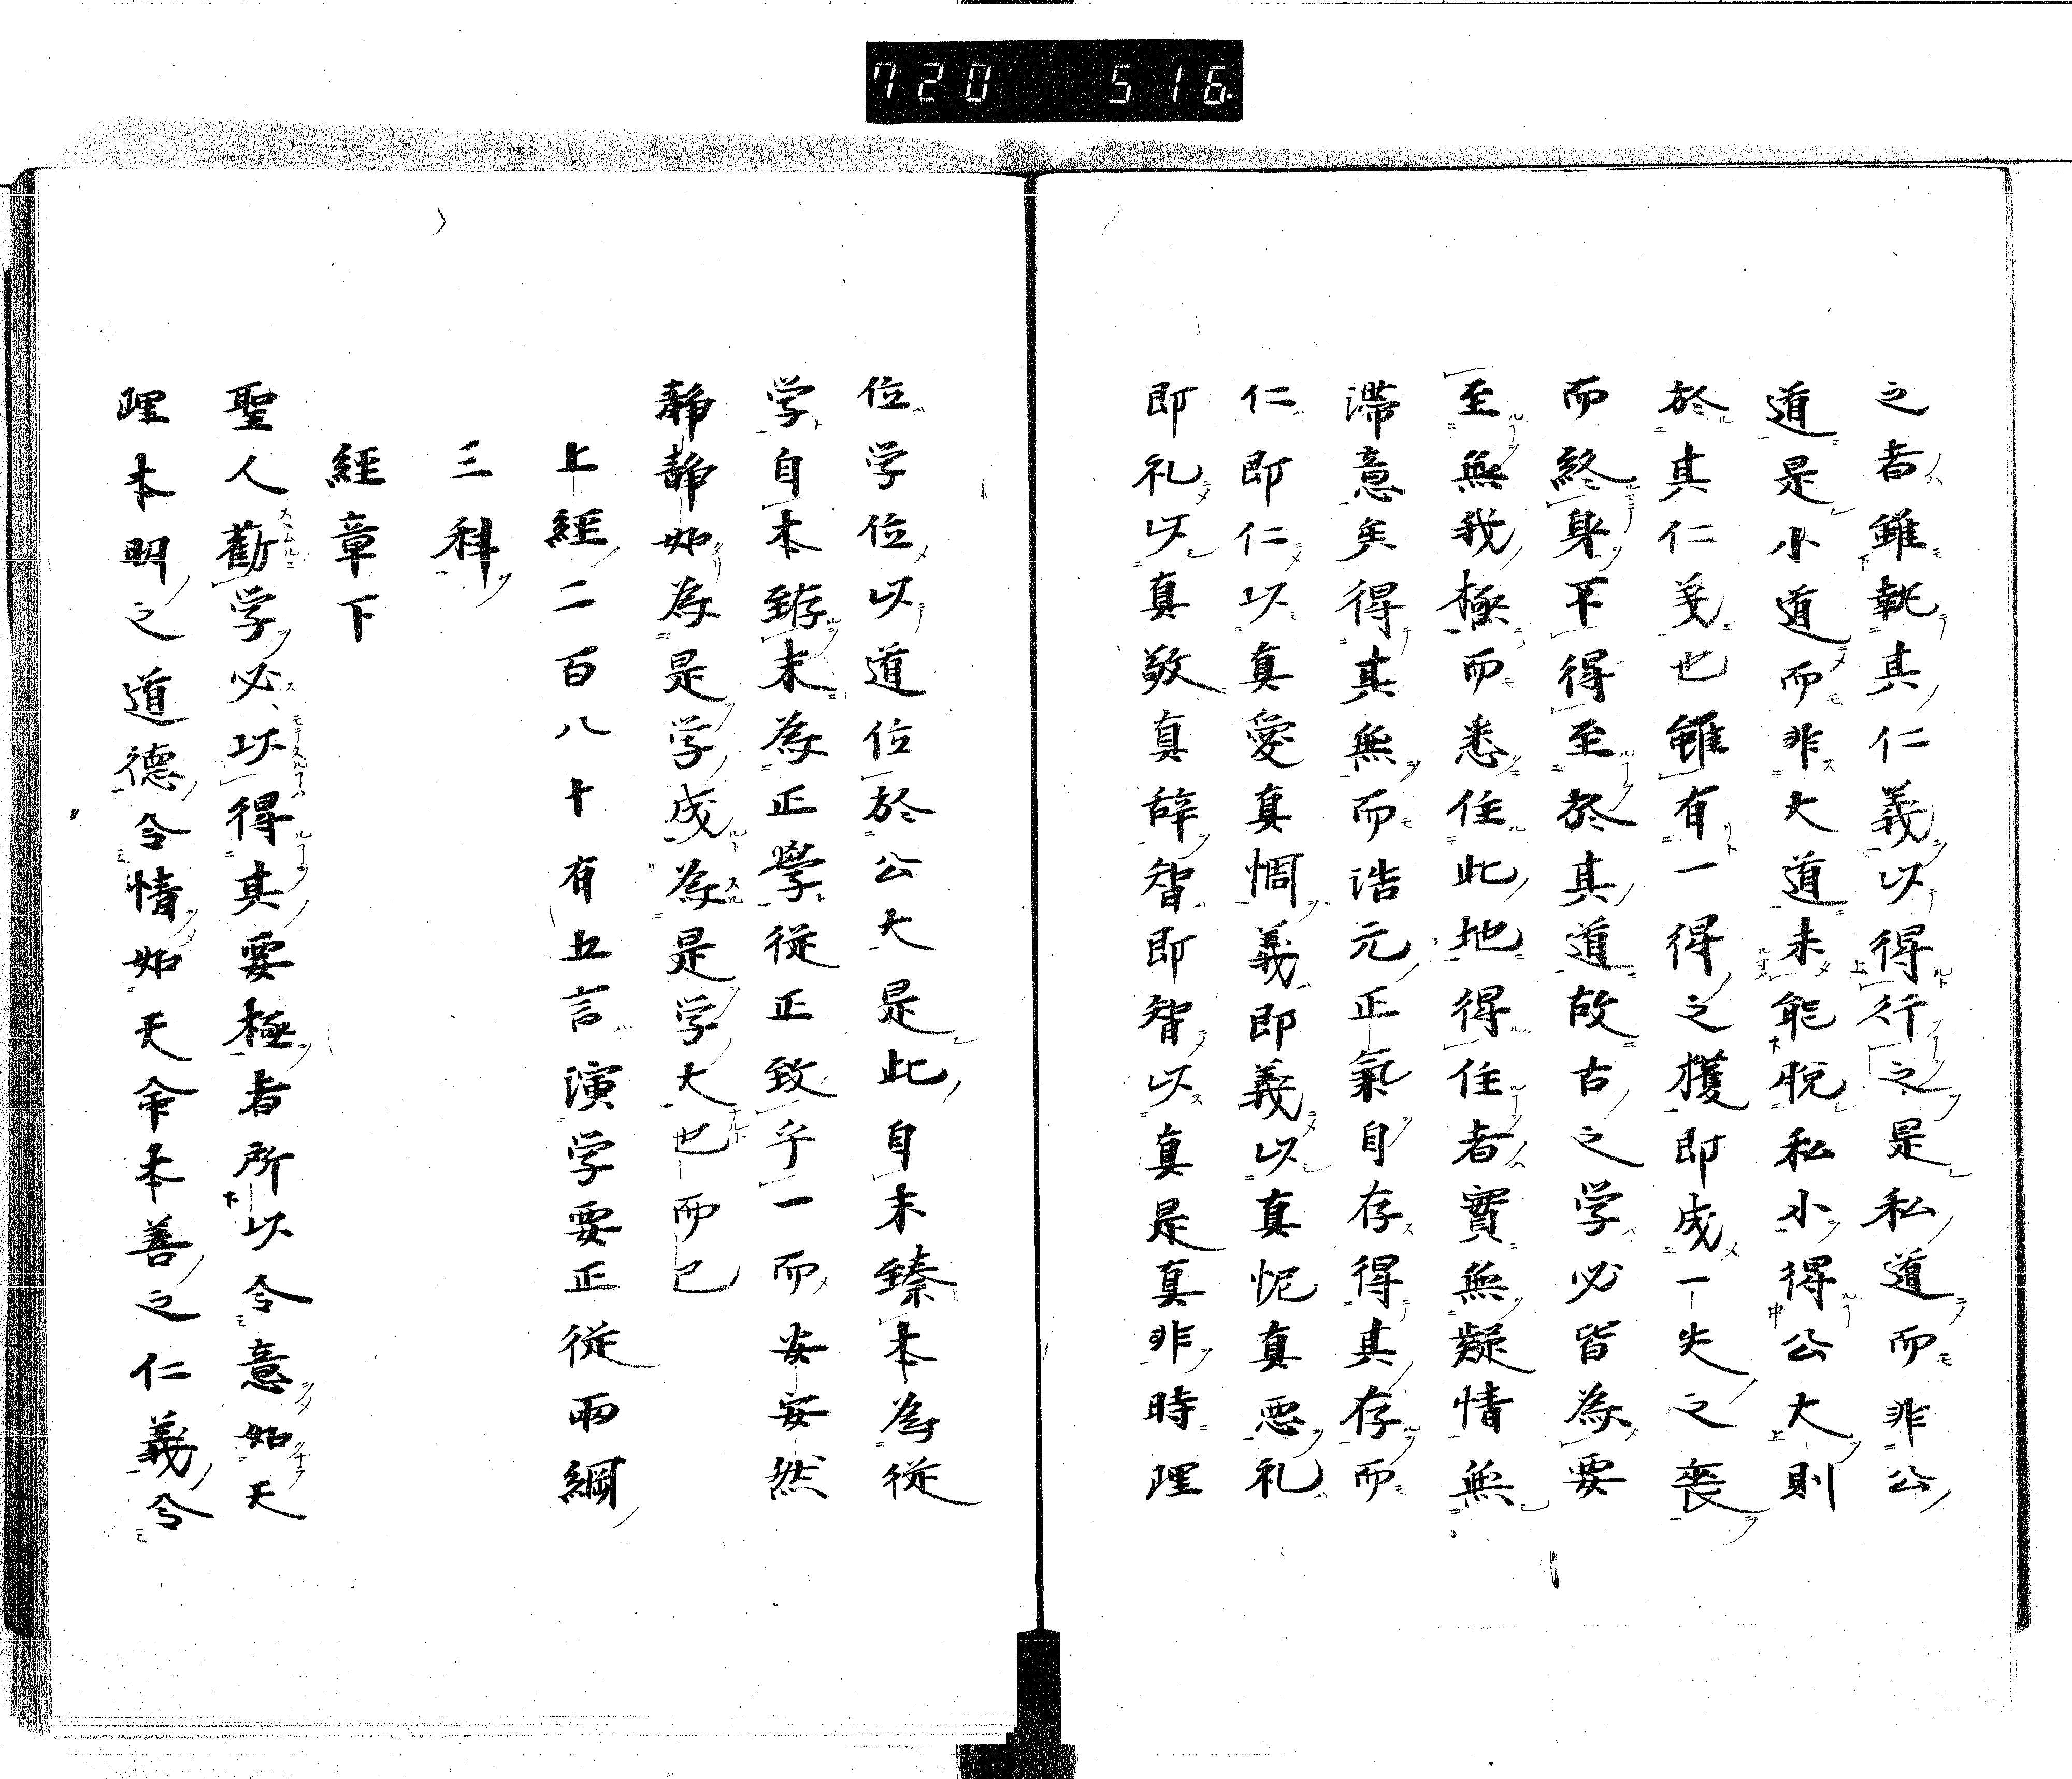 720 516.
之者雖執其仁義以得行之是私道而非公
道是小道而非大道未能脱私小得公大則
於其仁義也雖有一得之獲即成一失之喪
而終身不得至於其道故古之学必皆為要
至無我極而悉住此地得住者實無疑情無
滞意矣得其無而浩元正氣自存得其存而
仁即仁以真愛真惘義即義以真怩真悪礼
即礼以真敬真辞智即智以真是真非時理
位学位以道位於公大是此自末臻本為従
学自本臻末為正學従正致乎一而安安然
静静如為是学成為是学大也而已
上經二百八十有五言演学要正従兩綱
三科
經章下
聖人勸学必以得其要極者所以令意如天
理本明之道德令情如天命本善之仁義令